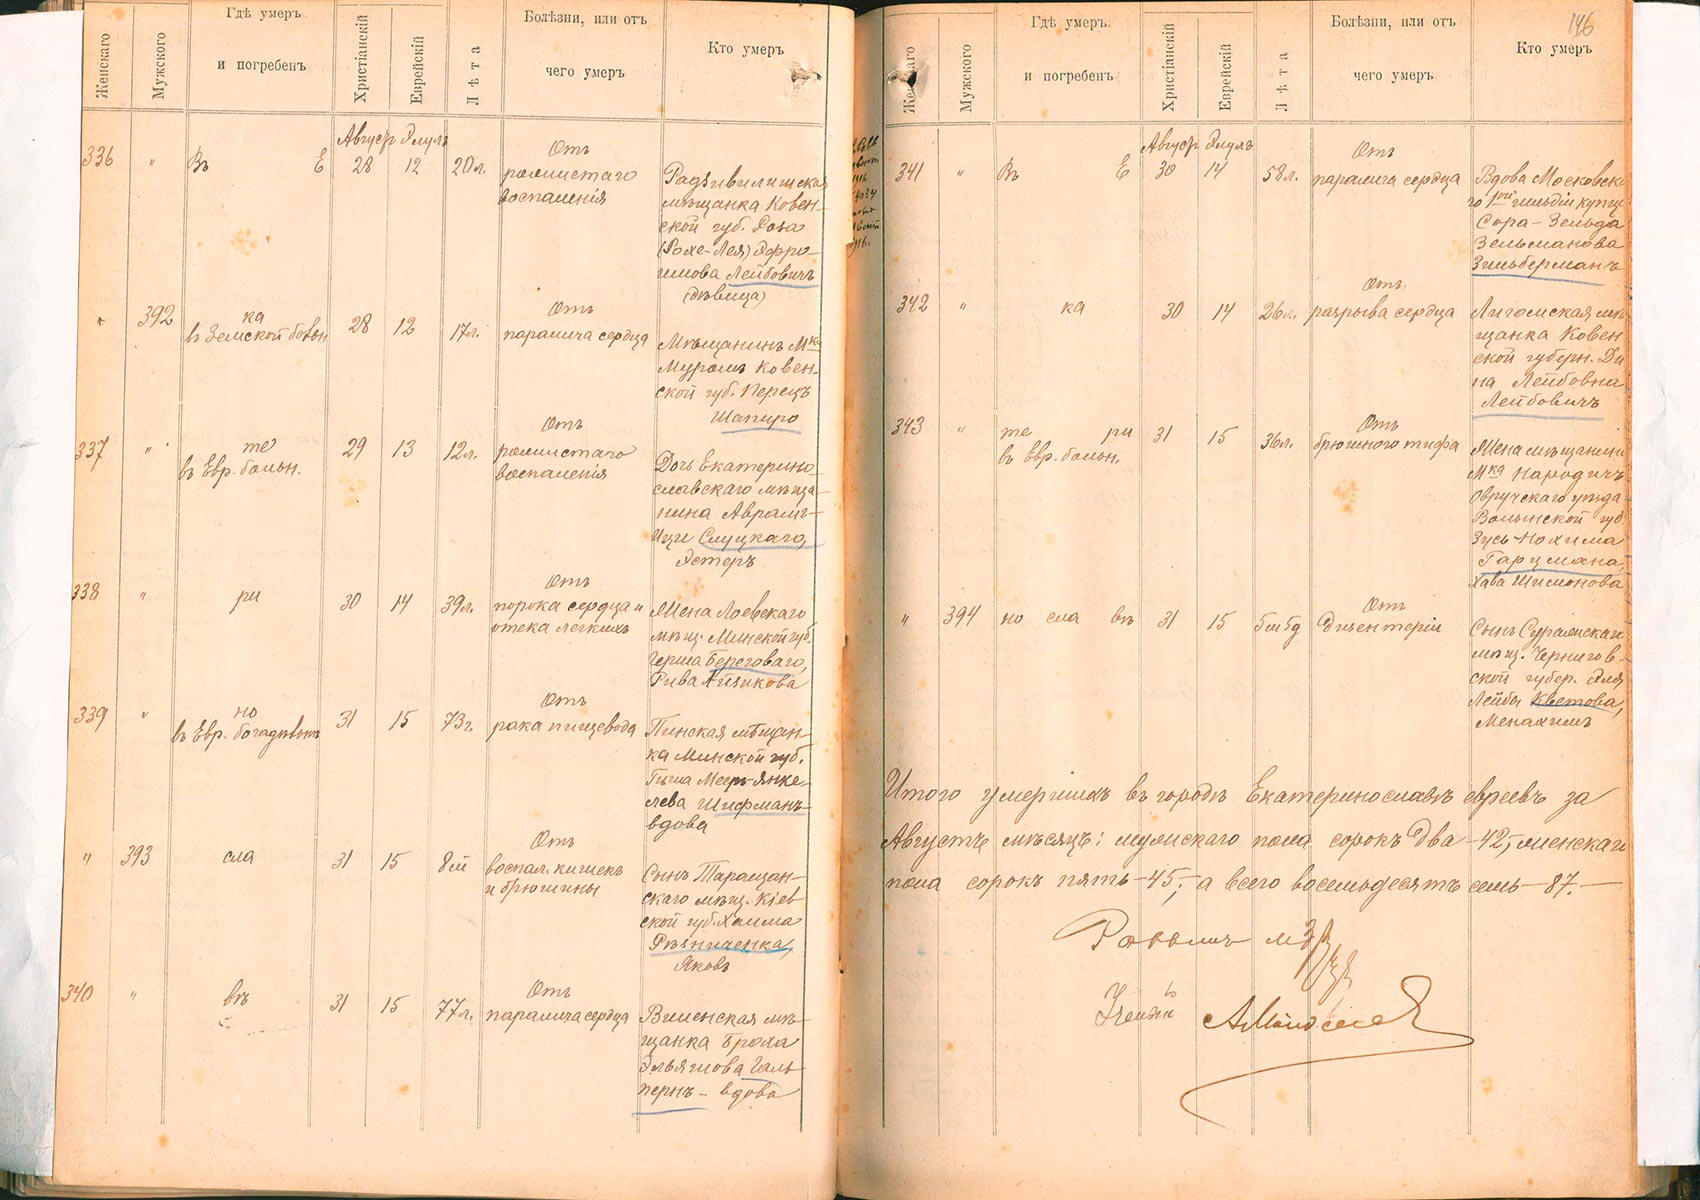 Женскаго
Мужского
Гдѣ умеръ
и погребенъ
Христіанскій
Еврейскій
Лѣта
Болѣзни, или отъ
чего умеръ
Кто умеръ
Август Элулъ
336 " Въ Е 28 12 20л.
Отъ
рожистаго
воспаленія
Радзивилишская
мѣщанка Ковен-
ской губ. Роза
(Рохе-Лея) Эфро-
имова Лейбовичъ
(дѣвица)
" 392 ка 28 12 17л.
въ Земской больн
Отъ
паралича сердца
Мѣщанинъ Мка
Ковен-
ской губ. Перецъ
Шапиро
337 " те 29 13 12л.
въ Евр. больн.
Отъ
рожистаго
воспаленія
Дочь Екатерино-
славскаго мѣща-
нина Аврамъ-
Ици Слуцкаго,
Эстеръ
338 " ри 30 14 39л.
Отъ
порока сердца и
отека легкихъ
Жена Лоевскаго
мѣщ. Минской губ.
Герша Береговаго,
Рива Айзикова
339 " но 31 15 73г.
въ Евр. богадѣльнѣ
Отъ
рака пищевода
Пинская мѣщан-
ка Минской губ.
Янке-
лева Шифманъ-
вдова
" 393 сла 31 15 8м
Отъ
воспал. кишекъ
и брюшины
Сынъ Таращан-
скаго мѣщ. Кіев
ской губ. Хаима
Рѣзниченка,
Яковъ
340 " вѣ 31 15 77л.
Отъ
паралича сердца
Виленская мѣ-
щанка Броха
Эльяшова Галь-
пернъ - вдова
146
Женскаго
Мужского
Гдѣ умеръ
и погребенъ
Христіанскій
Еврейскій
Лѣта
Болѣзни, или отъ
чего умеръ
Кто умеръ
Август Элулъ
341 " Въ Е 30 14 58л.
Отъ
паралича сердца
Вдова Московска
го 1ой гильдіи купца
Сора-Зельда
Зельманова
Зильберманъ
342 " ка 30 14 26л.
Отъ
разрыва сердца
Лигомская мѣ
щанка Ковен
ской губерн. Ди
на Лейбовна
Лейбовичъ
343 " те ри 31 15 36л.
въ Евр. больн.
Отъ
брюшного тифа
Жена мѣщанина
Мка Народичъ
Овручскаго уѣзда
Волынской губ
Зусь-Нохима
Гарцмана,
Хава Шимонова
" 394 но сла вѣ 31 15 5м 5д
Отъ
дизентеріи
Сынъ Суражскаго
мѣщ. Чернигов-
ской губер. Эля
Лейбы Кветова,
Менахимъ
Итого умершихъ въ городѣ Екатеринославѣ евреевъ за
Августъ мѣсяцъ: мужскаго пола сорокъ два -42,- женскаго
пола сорокъ пять-45,- а всего восемьдесятъ семь-87.-
Раввинъ